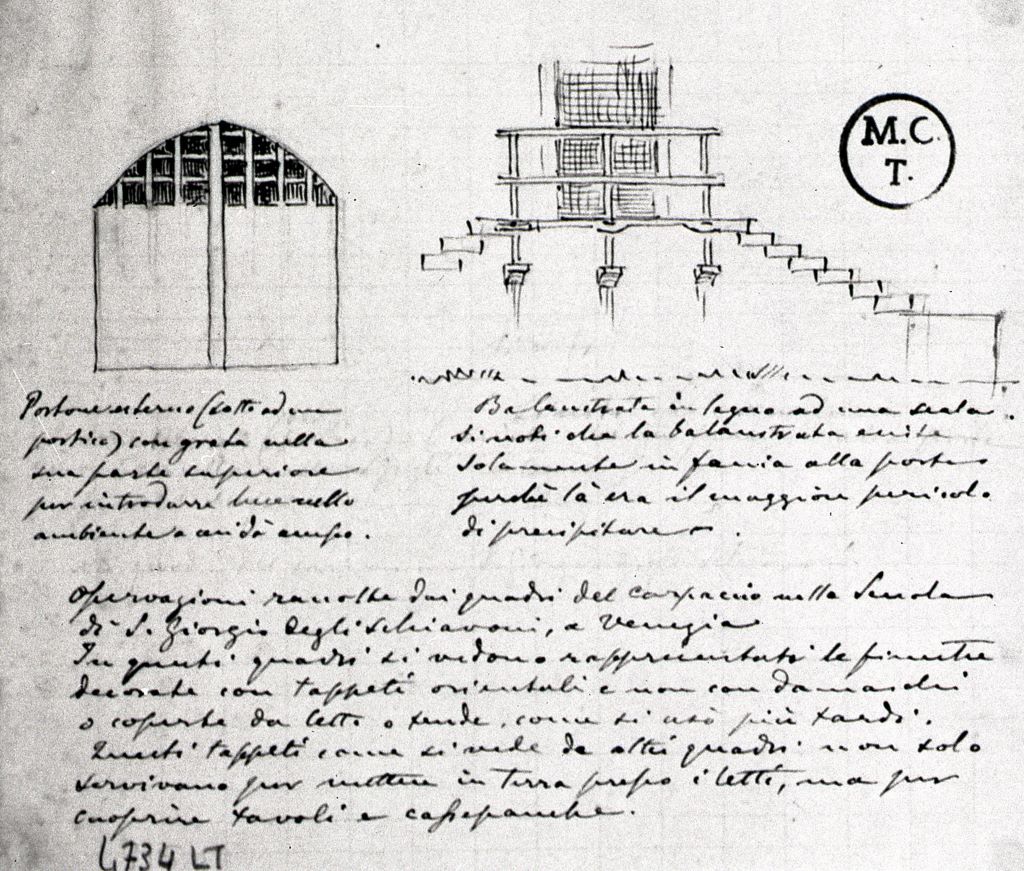 M.C.
T.
Portone esterno (sotto ad un
portico) con grata nella
sua parte superiore
per introdurre luce nello
ambiente a cui dà
Balaustrata in legno ad una scala.
Si noti che la balaustrata esiste
solamente in faccia alla porta
perchè là era il maggior pericolo
di precipitare.
Osservazioni raccolte dai quadri del Carpaccio nella Scuola
di S. Giorgio degli Schiavoni, a Venezia
In questi quadri si vedono rappresentati le finestre
decorate con tappeti orientali e non con damaschi
o coperte da letto o tende, come si usò più tardi.
Questi tappeti come si vede da altri quadri non solo
servivano per mettere in terra presso i letti, ma per
cuoprire tavoli e cassepanche.
4734 LT